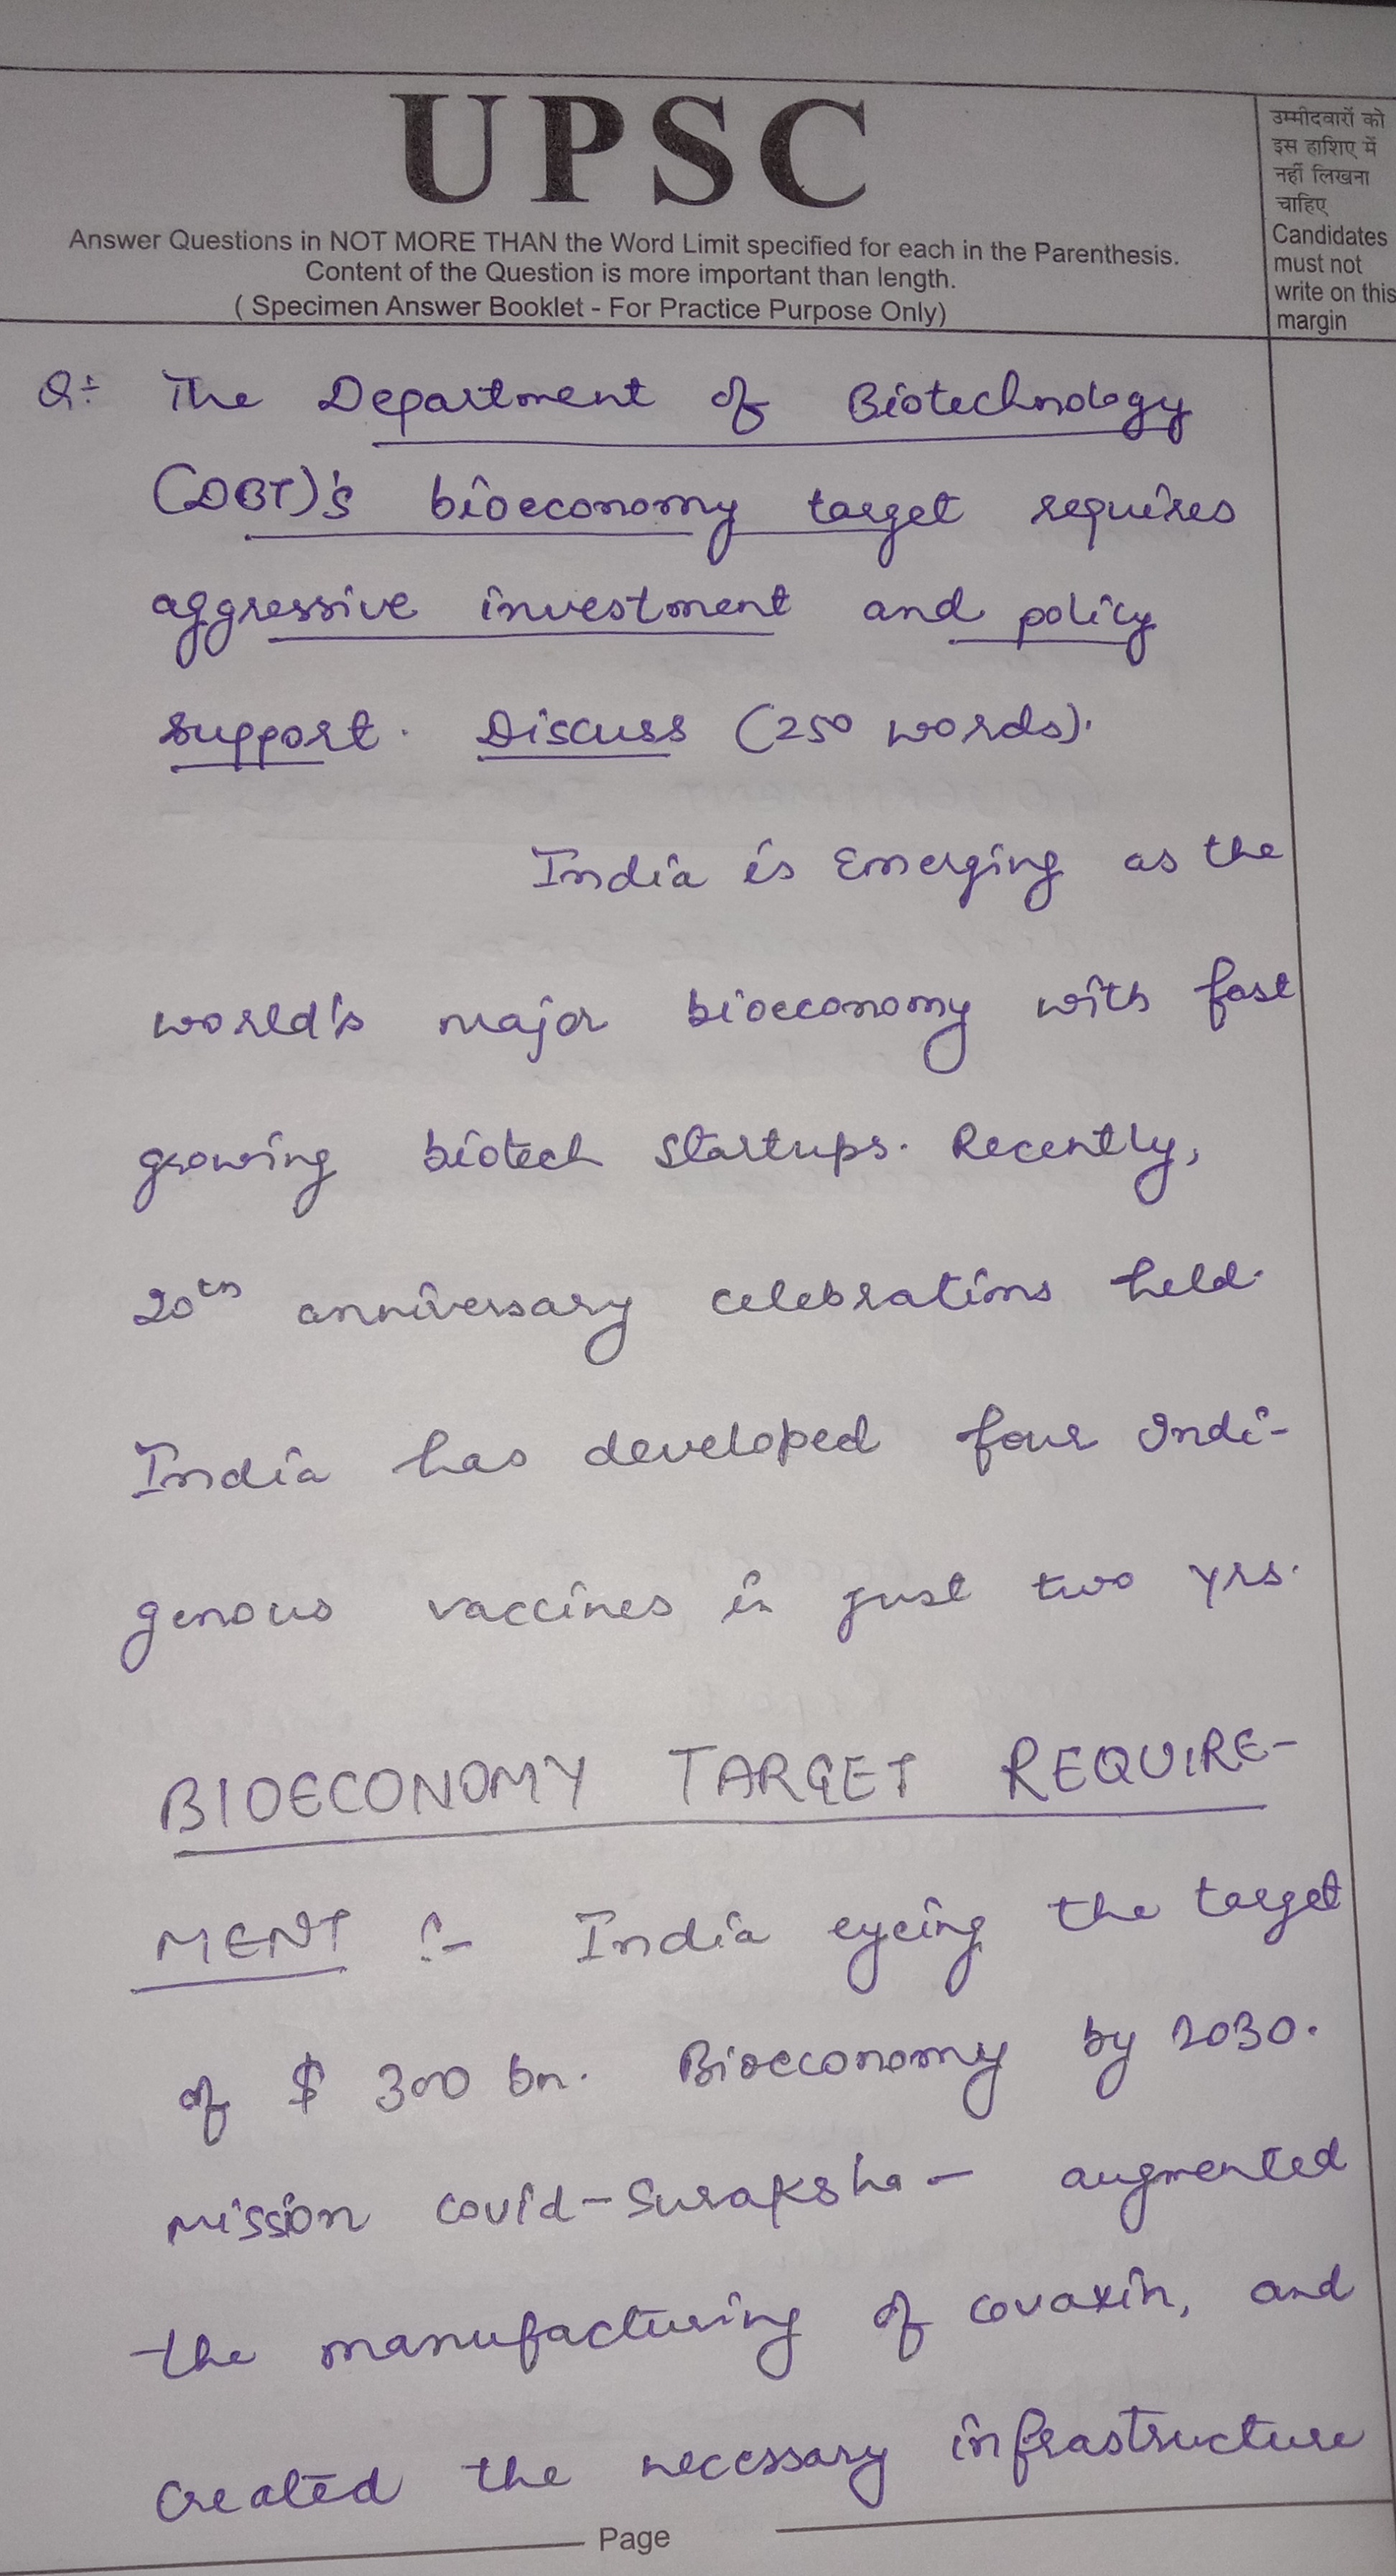 UPSC
Answer Questions in NOT MORE THAN the Word Limit specified for each in the Parenthesis.
Content of the Question is more important than length.
( Specimen Answer Booklet - For Practice Purpose Only)
उम्मीदवारों को
इस हाशिए में
नहीं लिखना
चाहिए
Candidates
must not
write on this
margin
Q:- The Department of Biotechnology
(DBT)'s bioeconomy target requires
aggressive investment and policy
support. Discuss (250 words).
India is Emerging as the
world's major bioeconomy with fast
growing biotech startups. Recently,
20th anniversary celebrations held.
India has developed four Indi-
genous vaccines in just two yrs.
BIOECONOMY TARGET REQUIRE-
MENT :- India eyeing the target
of $ 300 bn. Bioeconomy by 2030.
Mission Covid-Suraksha - augmented
the manufacturing of covaxin, and
created the necessary infrastructure
Page